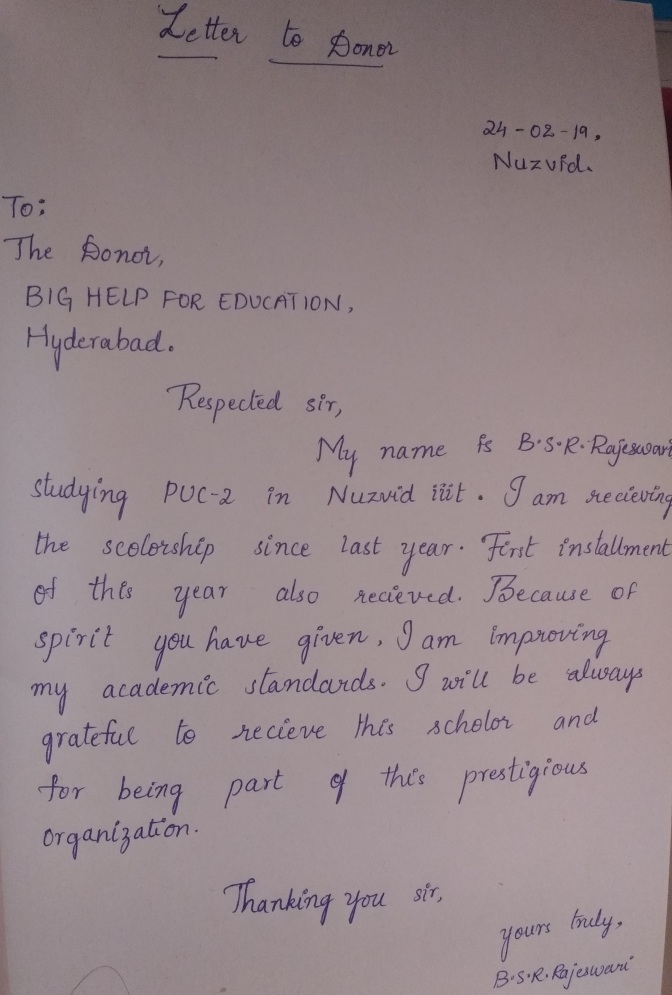 Letter to Donor
24-02-19.
Nuzvid.
To:
The Donor,
BIG HELP FOR EDUCATION,
Hyderabad.
Respected sir,
My name is B.S.R.Rajeswari
studying PUC-2 in Nuzvid iiit. I am recieving
the scolorship since last year. First installment
of this year also recieved. Because of
spirit you have given, I am improving
my academic standards. I will be always
grateful to recieve this scholor and
for being part of this prestigious
organization.
Thanking you sir,
yours truly,
B.S.R.Rajeswari